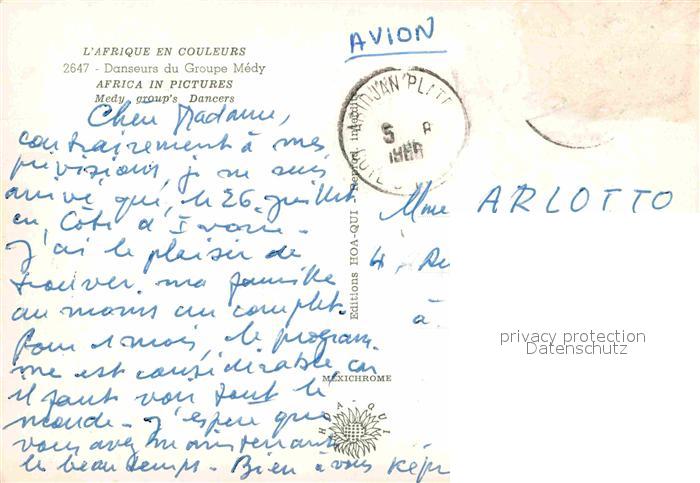 L'AFRIQUE EN COULEURS
2647 - Danseurs du Groupe Médy
AFRICA IN PICTURES
Medy group's Dancers
AVION
ABIDJAN PLATEAU
5 8
1966
Cher Madame,
contrairement à mes
prévisions, je ne suis
arrivé que, le 26 juillet
en Côte d'Ivoire -
J'ai le plaisir de
trouver ma famille
au moins au complet.
Pour 1 mois, le program-
me est considérable, car
il faut voir tout le
monde - J'espère que
vous avez maintenant
le beau temps - Bien à vous
Mme ARLOTTO
4, Ru
à
Editions HOA-QUI - Reprod. interdite
MEXICHROME
HOA-QUI
privacy protection
Datenschutz